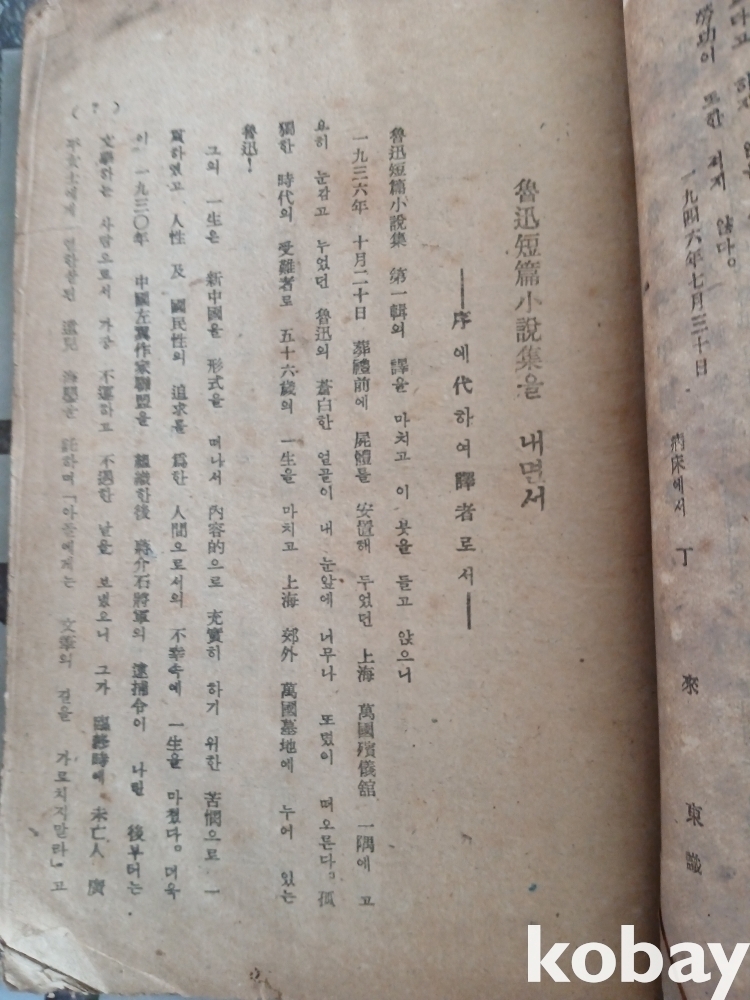 勞功이 또한 적지 않다。
一九四六年七月三十日
病床에서 丁 來 東 識
魯迅短篇小說集을 내면서
──序에代하여 譯者로서──
魯迅短篇小說集 第一輯의 譯을 마치고 이 붓을 들고 앉으니
一九三六年 十月二十日 葬禮前에 屍體를 安置해 두었던 上海 萬國殯儀館 一隅에 고
요히 눈감고 누었던 魯迅의 蒼白한 얼골이 내 눈앞에 너무나 또렸이 떠오른다。孤
獨한 時代의 受難者로 五十六歲의 一生을 마치고 上海 郊外 萬國墓地에 누어 있는
魯迅!
그의 一生은 新中國을 形式을 떠나서 內容的으로 充實히 하기 위한 苦憫으로 一
貫하였고 人性 及 國民性의 追求를 爲한 人間으로서의 不幸속에 一生을 마쳤다。더욱
이 一九三〇年 中國左翼作家聯盟을 組織한後 蔣介石將軍의 逮捕令이 나린 後부터는
文學하는 사람으로서 가장 不運하고 不遇한 날을 보냈으니 그가 臨終時에 未亡人 廣
平女士에게 遺兒 海嬰을 託하며「아들에게는 文學의 길을 가르치지말라」고
( 7 )
kobay